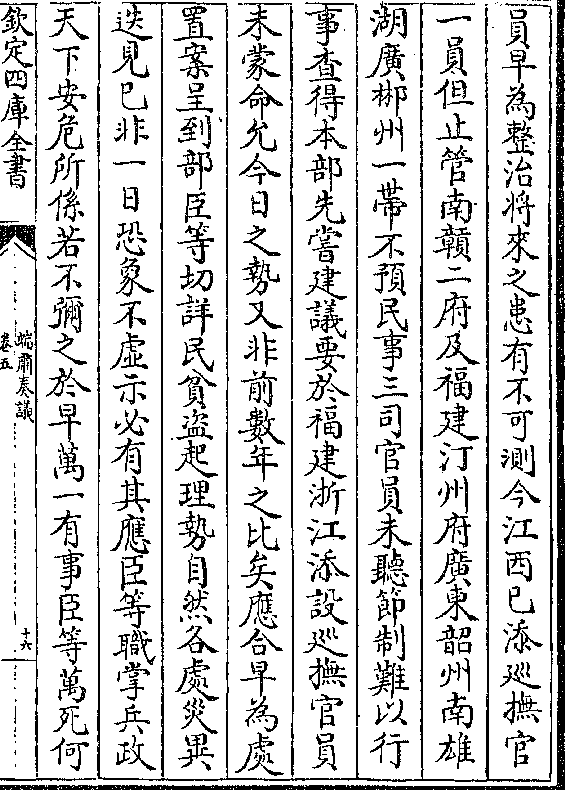 員早為整治將來之患有不可測今江西已添巡撫官
一員但止管南贛二府及福建汀州府廣東韶州南雄
湖廣郴州一帶不預民事三司官員未聽節制難以行
事查得本部先嘗建議要於福建浙江添設巡撫官員
未蒙命允今日之勢又非前數年之比矣應合早為處
置案呈到部臣等切詳民貧盜起理勢自然各處災異
迭見已非一日恐象不虛示必有其應臣等職掌兵政
天下安危所係若不彌之於早萬一有事臣等萬死何
欽定四庫全書
端肅奏議
卷五
十六